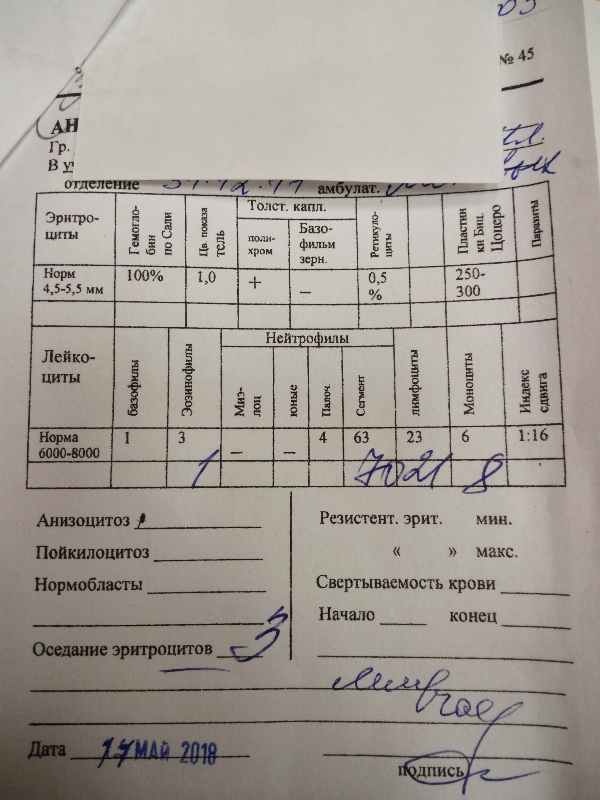 05
№ 45
АН
Гр.
В у
отделение 31.12.11 амбулат.
Эритро-циты Гемогло-бин по Сали Цв. показатель Толст. капл. поли-хром Базо-фильм зерн. Ретикуло-циты Пластинки Биц. Цоцеро Паразиты
Норм 4,5-5,5 мм 100% 1,0 + – 0,5 % 250-300
Лейко-циты базофилы Эозинофилы Нейтрофилы Миэ-лоц юные Палоч Сегмент лимфоциты Моноциты Индекс сдвига
Норма 6000-8000 1 3 – – 4 63 23 6 1:16
1 70 21 8
Анизоцитоз
Резистент. эрит. мин.
Пойкилоцитоз
« » макс.
Нормобласты
Свертываемость крови
Начало конец
Оседание эритроцитов 3
Дата 17 МАЙ 2018
подпись